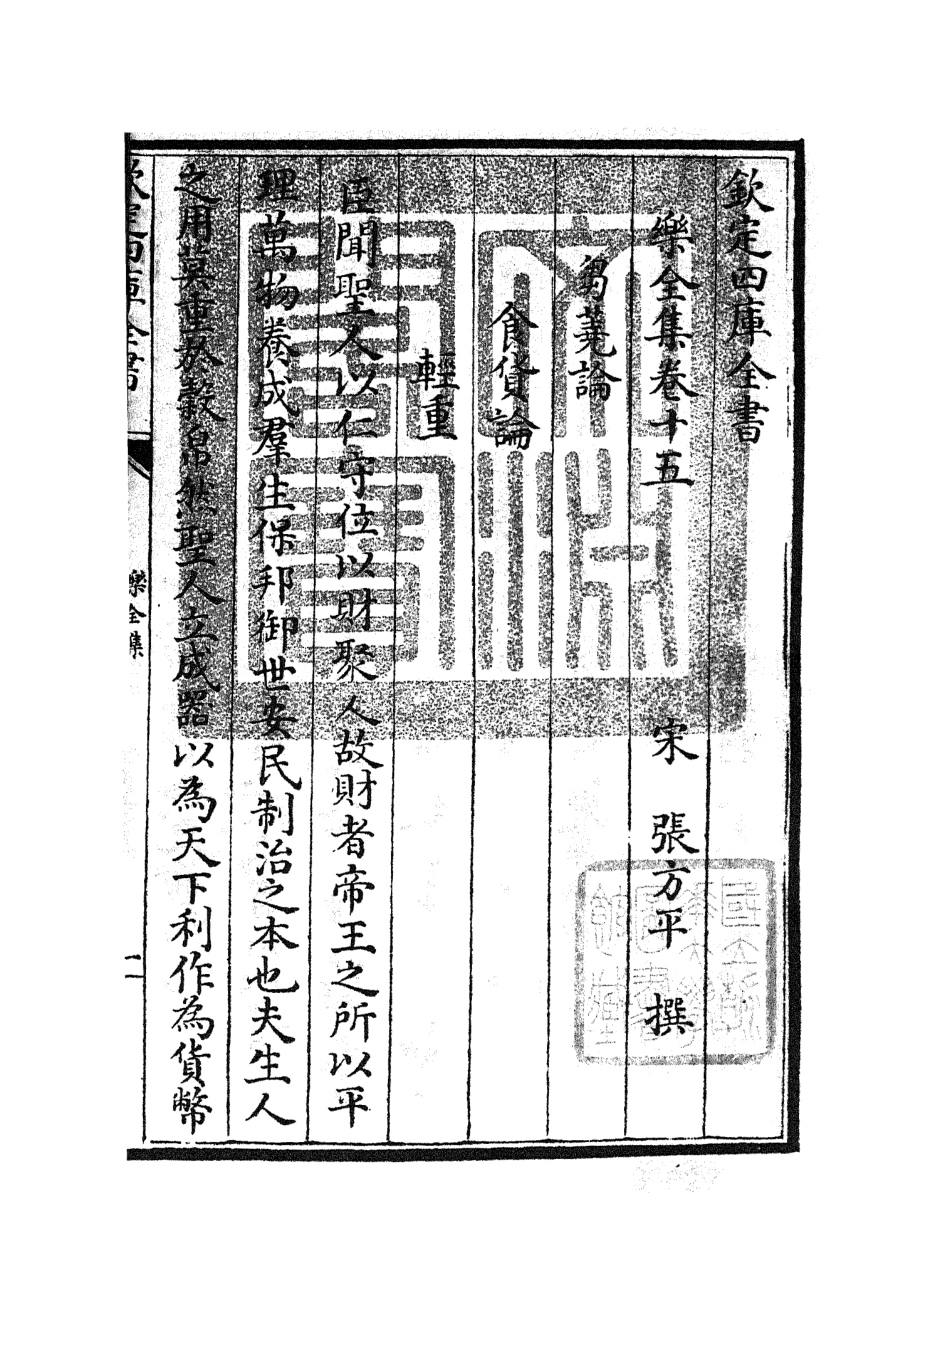 欽定四庫全書
樂全集卷十五
宋 張方平 撰
芻蕘論
食貨論
輕重
臣聞聖人以仁守位以財聚人故財者帝王之所以平
理萬物養成羣生保邦御世安民制治之本也夫生人
之用莫重於穀帛然聖人立成器以為天下利作為貨幣
欽定四庫全書
樂全集
一